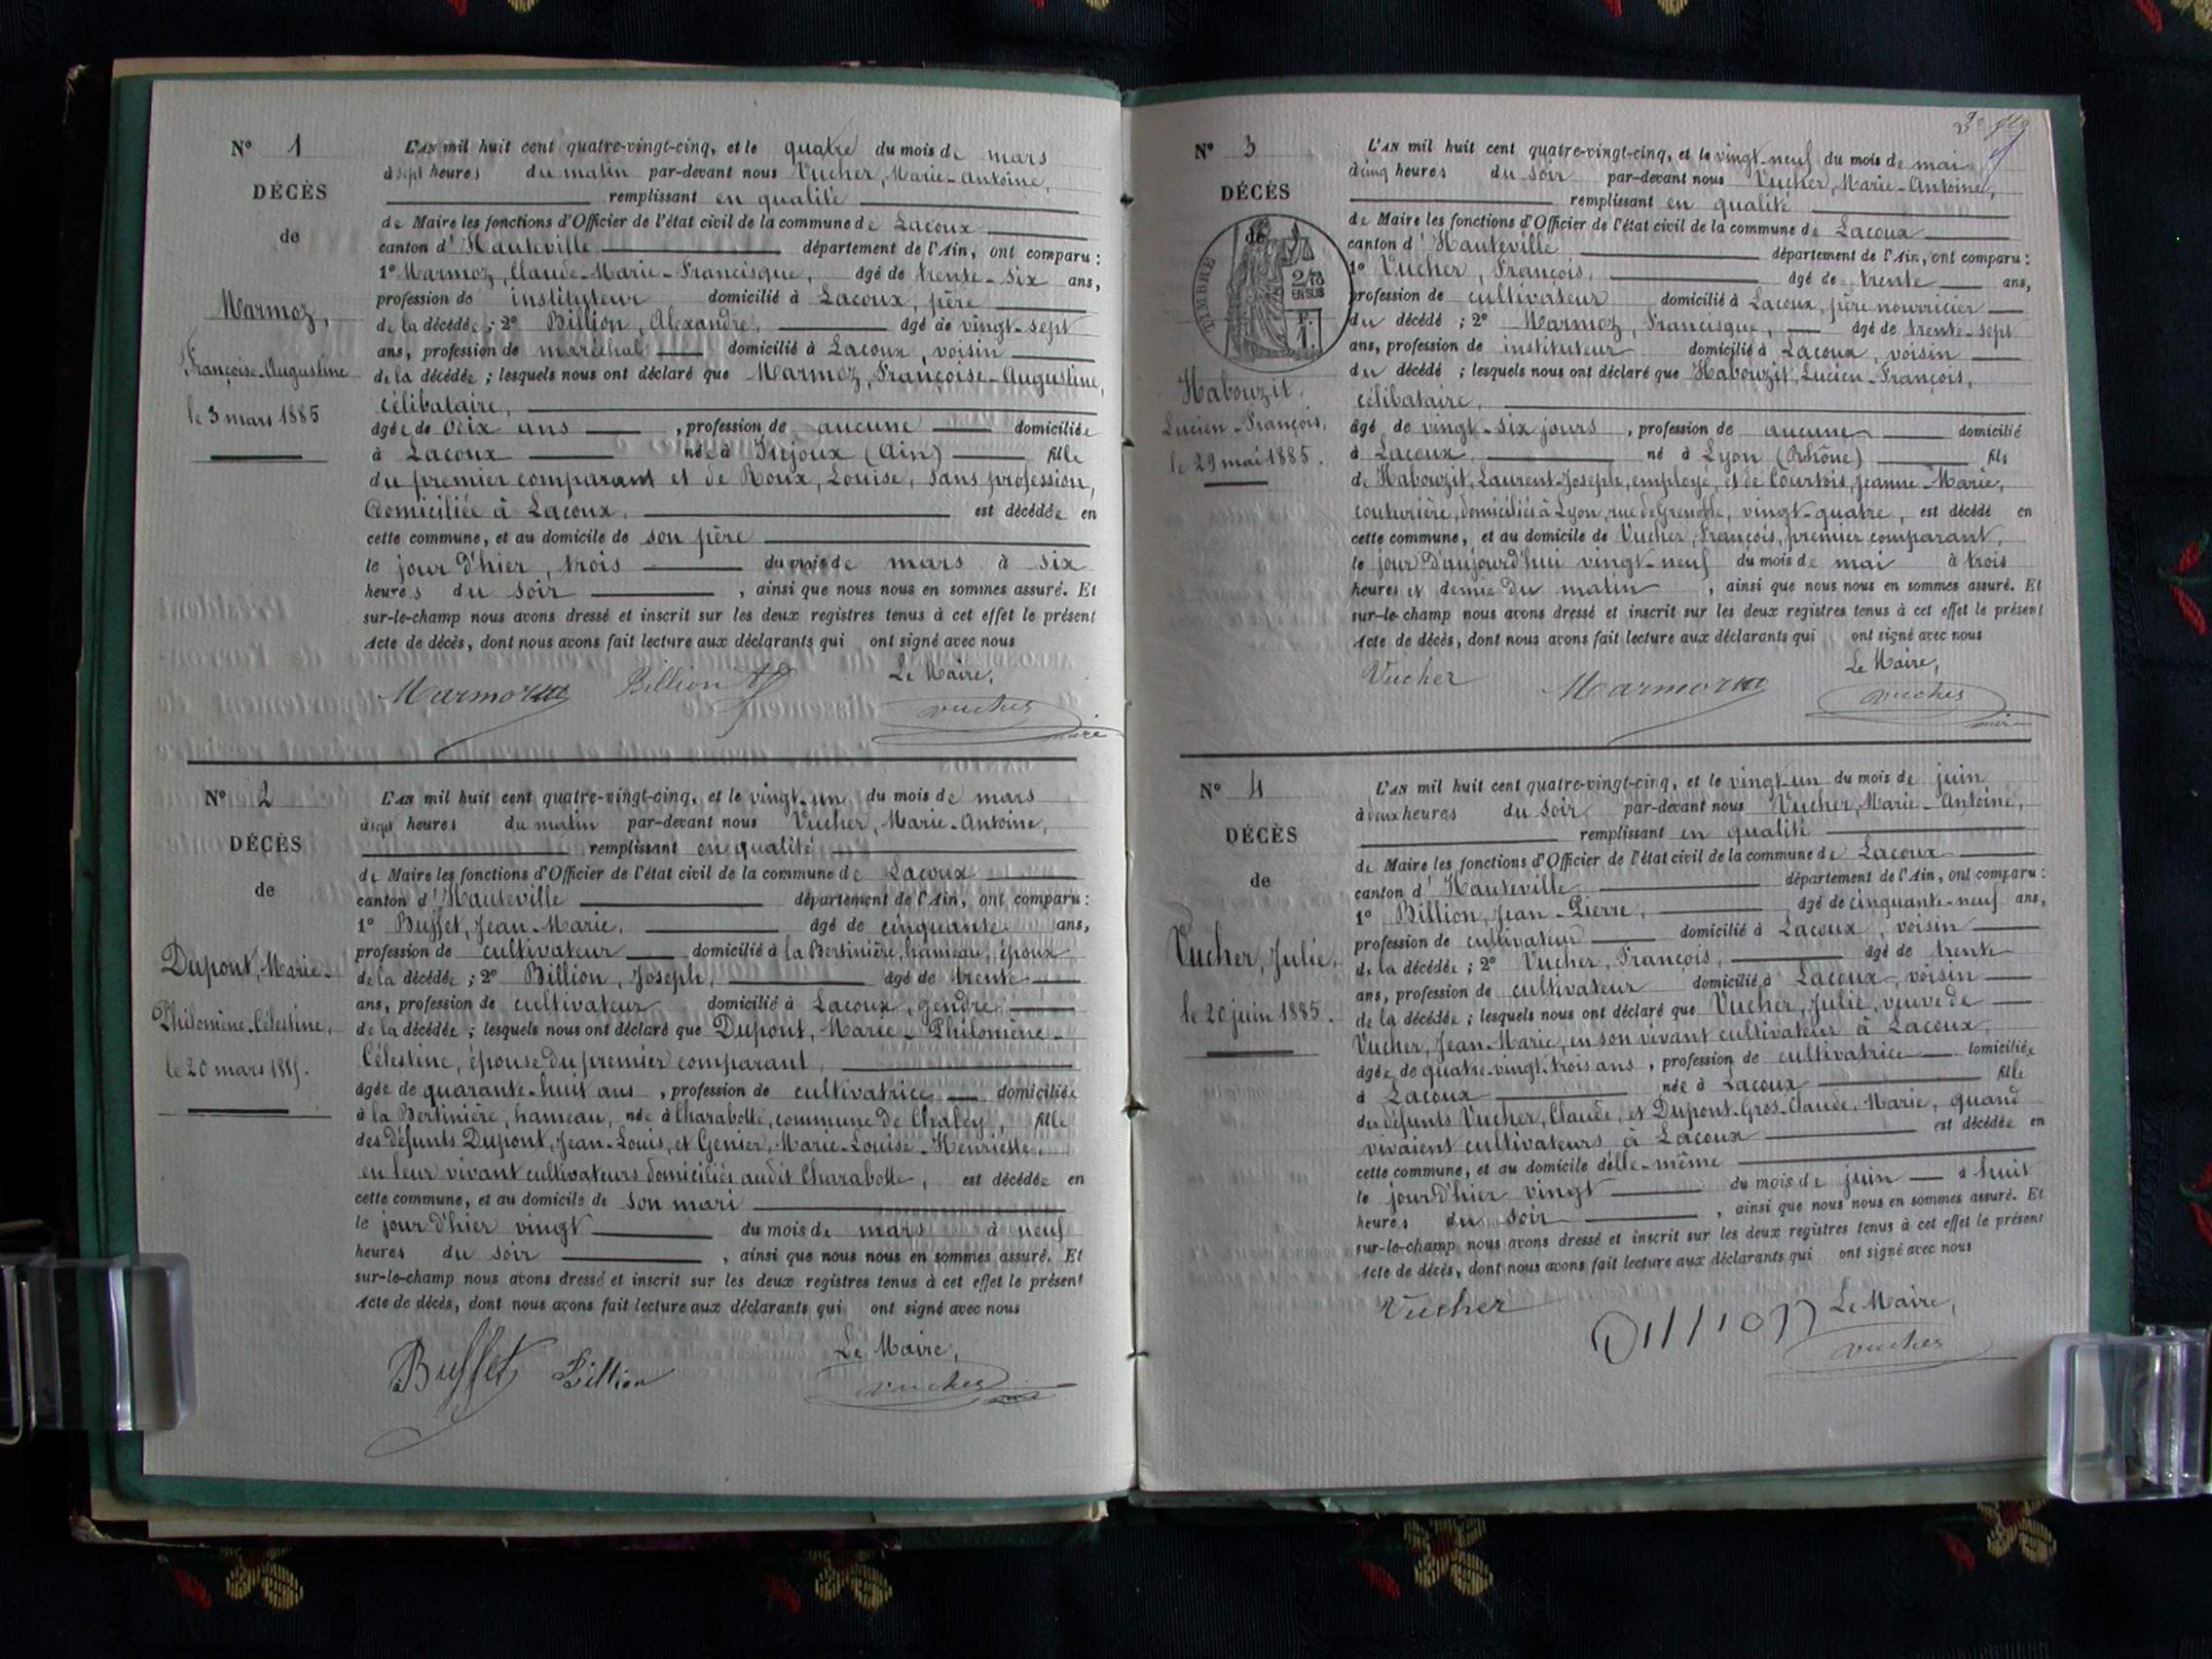 N° 1
DÉCÈS
de
Marmoz,
Françoise-Augustine
le 3 mars 1885
L'AN mil huit cent quatre-vingt-cinq, et le quatre du mois de mars
à sept heures du matin par-devant nous Vucher, Marie-Antoine,
remplissant en qualité
de Maire les fonctions d'Officier de l'état civil de la commune de Lacoux
canton d'Hauteville département de l'Ain, ont comparu :
1° Marmoz, Claude-Marie-Francisque, âgé de trente-six ans,
profession de instituteur domicilié à Lacoux, père
de la décédée ; 2° Billion, Alexandre, âgé de vingt-sept
ans, profession de maréchal domicilié à Lacoux, voisin
de la décédée ; lesquels nous ont déclaré que Marmoz, Françoise-Augustine,
célibataire,
âgée de dix ans , profession de aucune domiciliée
à Lacoux née à Injoux (Ain) fille
du premier comparant et de Roux, Louise, sans profession,
domiciliée à Lacoux, est décédée en
cette commune, et au domicile de son père
le jour d'hier, trois du mois de mars à six
heures du soir , ainsi que nous nous en sommes assuré. Et
sur-le-champ nous avons dressé et inscrit sur les deux registres tenus à cet effet le présent
Acte de décès, dont nous avons fait lecture aux déclarants qui ont signé avec nous
Le Maire,
Marmoz Billion Af Vucher
maire
N° 2
DÉCÈS
de
Dupont, Marie-
Philomène-Célestine,
le 20 mars 1885.
L'AN mil huit cent quatre-vingt-cinq, et le vingt-un du mois de mars
à sept heures du matin par-devant nous Vucher, Marie-Antoine,
remplissant en qualité
de Maire les fonctions d'Officier de l'état civil de la commune de Lacoux
canton d'Hauteville département de l'Ain, ont comparu :
1° Buffet, Jean-Marie, âgé de cinquante ans,
profession de cultivateur domicilié à la Bertinière, hameau, époux
de la décédée ; 2° Billion, Joseph, âgé de trente
ans, profession de cultivateur domicilié à Lacoux, gendre
de la décédée ; lesquels nous ont déclaré que Dupont, Marie-Philomène-
Célestine, épouse du premier comparant,
âgée de quarante-huit ans , profession de cultivatrice domiciliée
à la Bertinière, hameau, née à Charabotte, commune de Chaley, fille
des défunts Dupont, Jean-Louis, et Genier, Marie-Louise-Henriette,
en leur vivant cultivateurs domiciliés audit Charabotte, est décédée en
cette commune, et au domicile de son mari
le jour d'hier vingt du mois de mars à neuf
heures du soir , ainsi que nous nous en sommes assuré. Et
sur-le-champ nous avons dressé et inscrit sur les deux registres tenus à cet effet le présent
Acte de décès, dont nous avons fait lecture aux déclarants qui ont signé avec nous
Le Maire,
Buffet Billion Vucher
N° 3
DÉCÈS
de
TIMBRE
2/10
EN SUS
Habouzit,
Lucien-François,
le 29 mai 1885.
L'AN mil huit cent quatre-vingt-cinq, et le vingt-neuf du mois de mai
à cinq heures du soir par-devant nous Vucher, Marie-Antoine,
remplissant en qualité
de Maire les fonctions d'Officier de l'état civil de la commune de Lacoux
canton d'Hauteville département de l'Ain, ont comparu :
1° Vucher, François, âgé de trente ans,
profession de cultivateur domicilié à Lacoux, père nourricier
du décédé ; 2° Marmoz, Francisque, âgé de trente-sept
ans, profession de instituteur domicilié à Lacoux, voisin
du décédé ; lesquels nous ont déclaré que Habouzit, Lucien-François,
célibataire,
âgé de vingt-six jours , profession de aucune domicilié
à Lacoux, né à Lyon (Rhône) fils
de Habouzit, Laurent-Joseph, employé, et de Courtois, Jeanne-Marie,
couturière, domiciliés à Lyon, rue de Grenoble, vingt-quatre, est décédé en
cette commune, et au domicile de Vucher, François, premier comparant,
le jour d'aujourd'hui vingt-neuf du mois de mai à trois
heures et demie du matin , ainsi que nous nous en sommes assuré. Et
sur-le-champ nous avons dressé et inscrit sur les deux registres tenus à cet effet le présent
Acte de décès, dont nous avons fait lecture aux déclarants qui ont signé avec nous
Le Maire,
Vucher Marmoz Vucher
N° 4
DÉCÈS
de
Vucher, Julie,
le 20 juin 1885.
L'AN mil huit cent quatre-vingt-cinq, et le vingt-un du mois de juin
à deux heures du soir par-devant nous Vucher, Marie-Antoine,
remplissant en qualité
de Maire les fonctions d'Officier de l'état civil de la commune de Lacoux
canton d'Hauteville département de l'Ain, ont comparu :
1° Billion, Jean-Pierre, âgé de cinquante-neuf ans,
profession de cultivateur domicilié à Lacoux, voisin
de la décédée ; 2° Vucher, François, âgé de trente
ans, profession de cultivateur domicilié à Lacoux, voisin
de la décédée ; lesquels nous ont déclaré que Vucher, Julie, veuve de
Vucher, Jean-Marie, en son vivant cultivateur à Lacoux,
âgée de quatre-vingt-trois ans , profession de cultivatrice domiciliée
à Lacoux née à Lacoux fille
des défunts Vucher, Claude, et Dupont-Gros-Claude, Marie, quand
vivaient cultivateurs à Lacoux est décédée en
cette commune, et au domicile d'elle-même
le jour d'hier vingt du mois de juin à huit
heures du soir , ainsi que nous nous en sommes assuré. Et
sur-le-champ nous avons dressé et inscrit sur les deux registres tenus à cet effet le présent
Acte de décès, dont nous avons fait lecture aux déclarants qui ont signé avec nous
Le Maire,
Vucher Billion Vucher